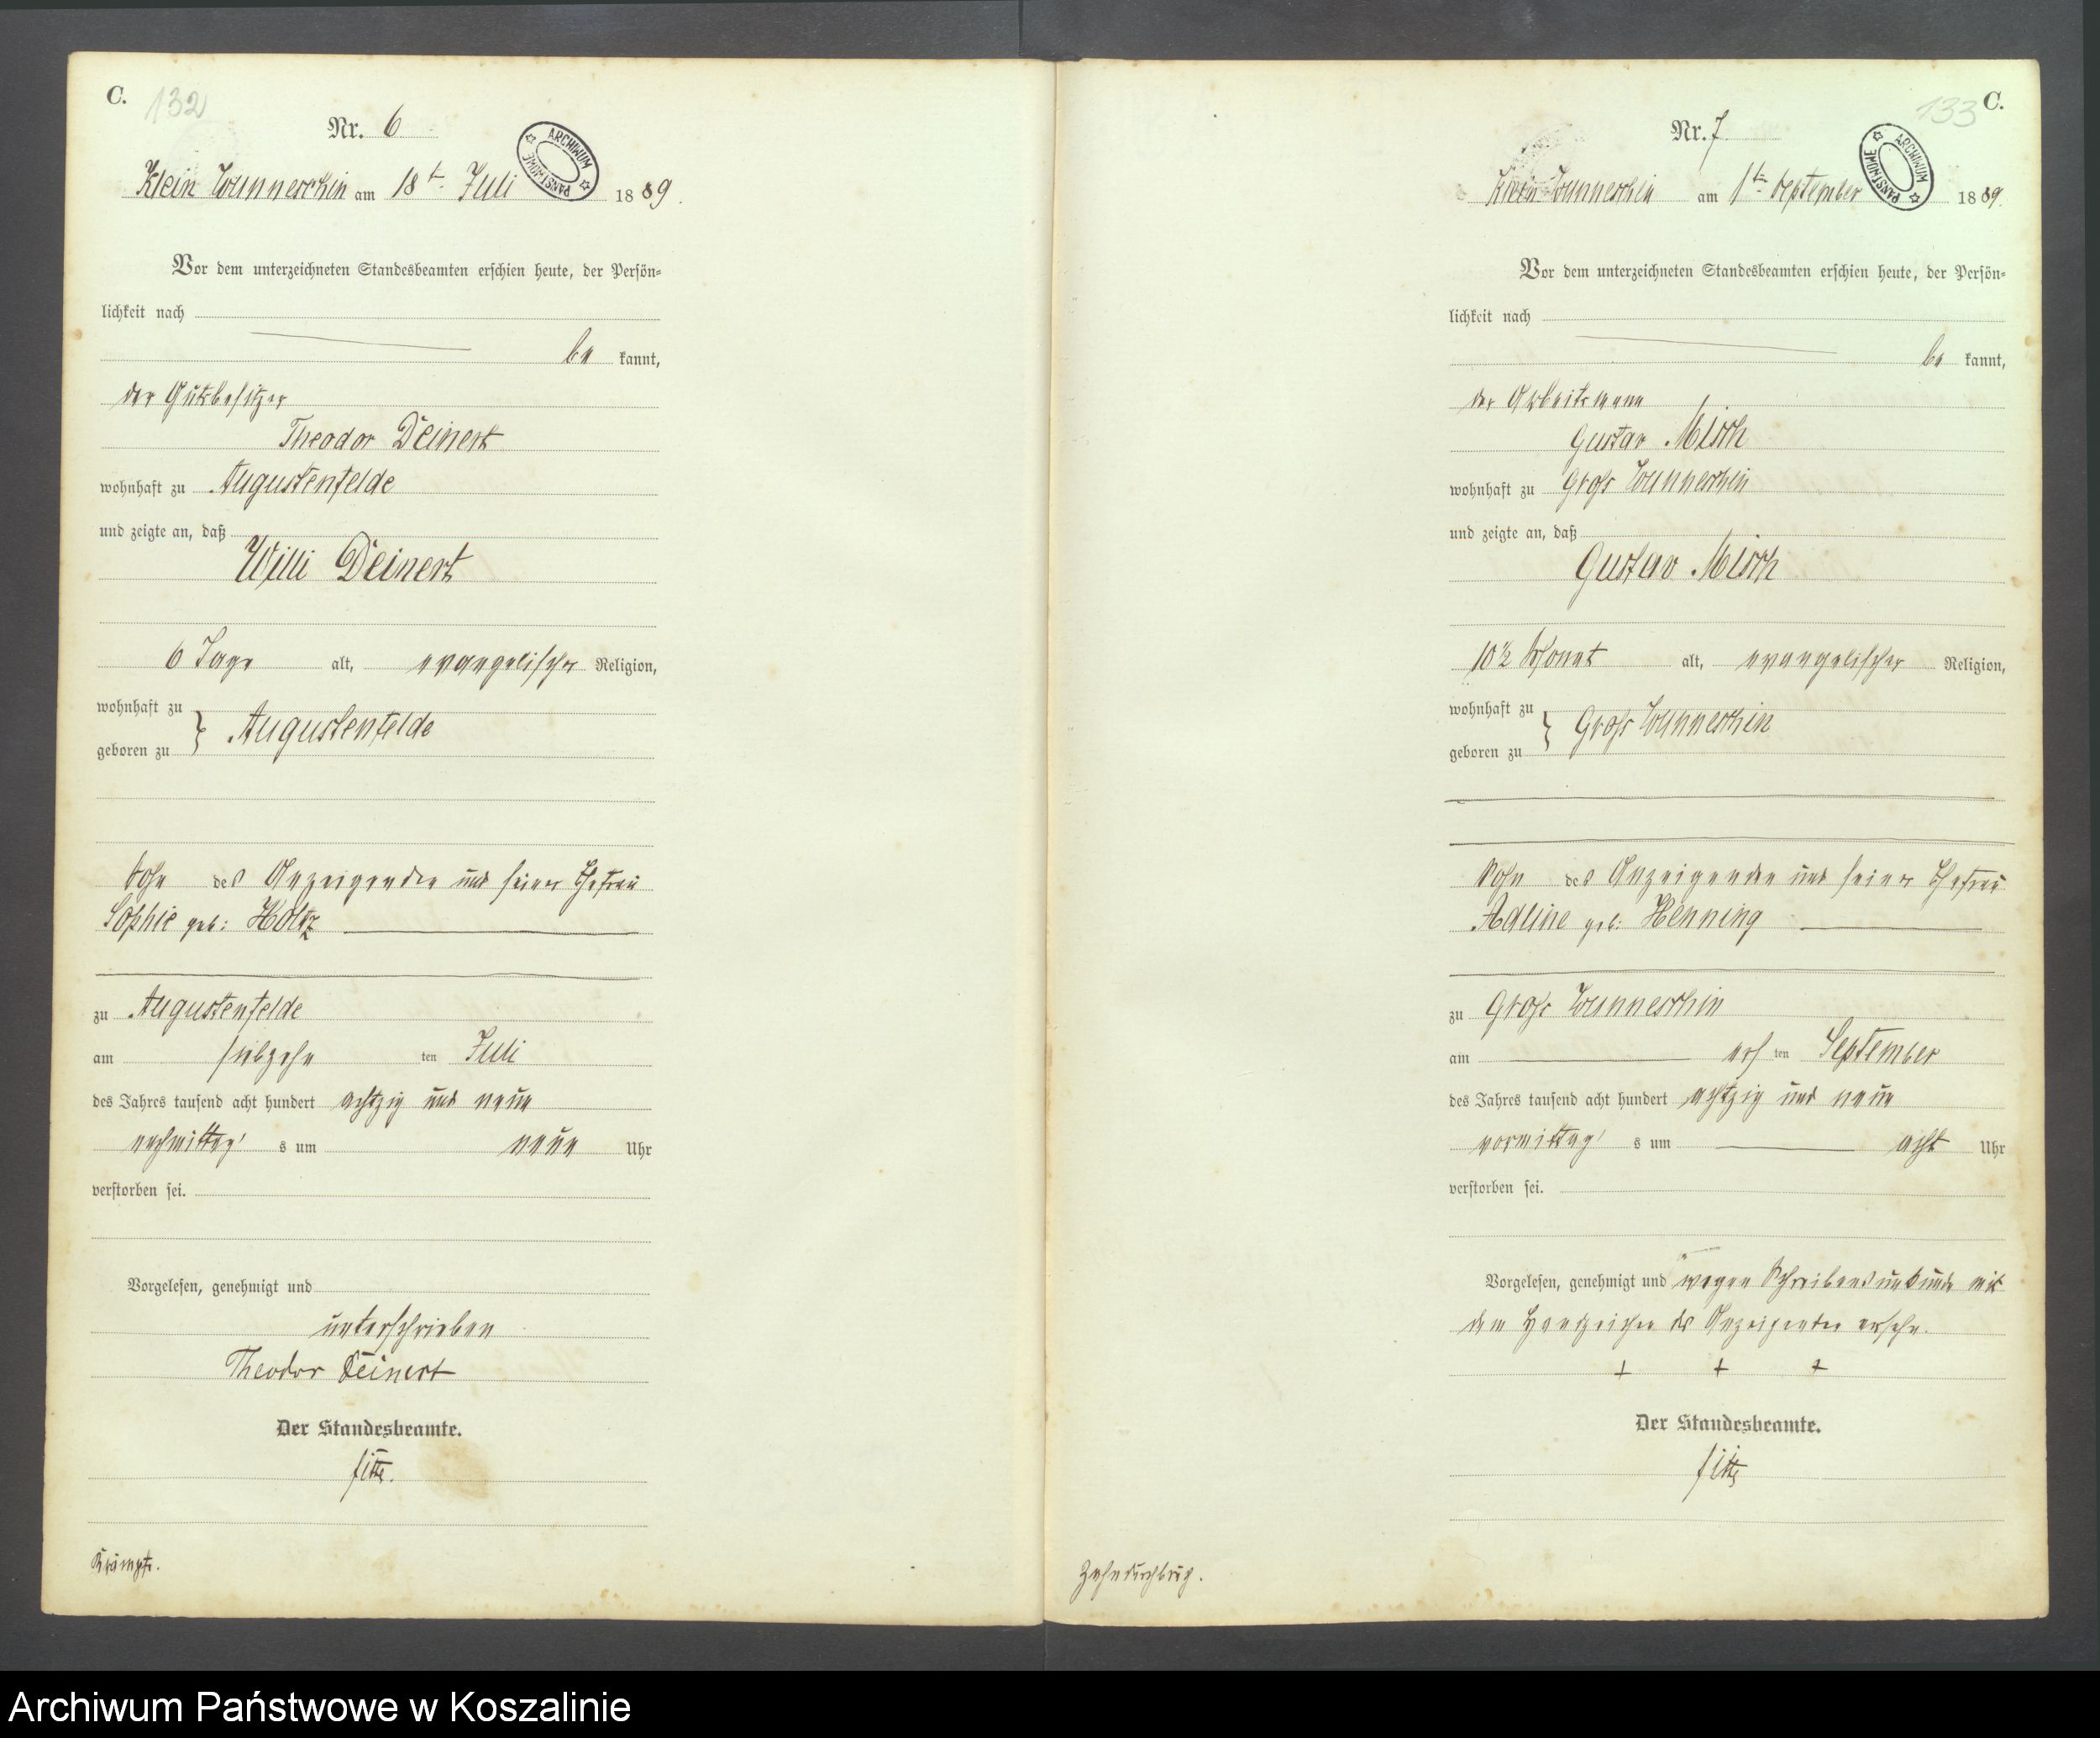 C.
132
Nr. 6
ARCHIWUM PAŃSTWOWE
Klein Wunneschin am 18t. Juli 1889.
Vor dem unterzeichneten Standesbeamten erschien heute, der Persön-
lichkeit nach
be kannt,
der Gutsbesitzer
Theodor Deinert
wohnhaft zu Augustenfelde
und zeigte an, daß
Willi Deinert
6 Tage alt, evangelischer Religion,
wohnhaft zu
geboren zu } Augustenfelde
Sohn des Anzeigenden und seiner Ehefrau
Sophie geb: Holtz
zu Augustenfelde
am siebzehn ten Juli
des Jahres tausend acht hundert achtzig und neun
nachmittag's um neun Uhr
verstorben sei.
Vorgelesen, genehmigt und
unterschrieben
Theodor Deinert
Der Standesbeamte.
Krämpfe.
133
C.
Nr. 7
ARCHIWUM PAŃSTWOWE
Klein Wunneschin am 1ten September 1889.
Vor dem unterzeichneten Standesbeamten erschien heute, der Persön-
lichkeit nach
be kannt,
der Arbeitsmann
Gustav Misch
wohnhaft zu Groß Wunneschin
und zeigte an, daß
Gustav Misch
10½ Monat alt, evangelischer Religion,
wohnhaft zu
geboren zu } Groß Wunneschin
Sohn des Anzeigenden und seiner Ehefrau
Adline geb: Henning
zu Groß Wunneschin
am ersten September
des Jahres tausend acht hundert achtzig und neun
vormittag's um acht Uhr
verstorben sei.
Vorgelesen, genehmigt und wegen Schreibensunkunde mit
dem Handzeichen des Anzeigenden versehn.
+ + +
Der Standesbeamte.
Zahndurchbruch.
Archiwum Państwowe w Koszalinie